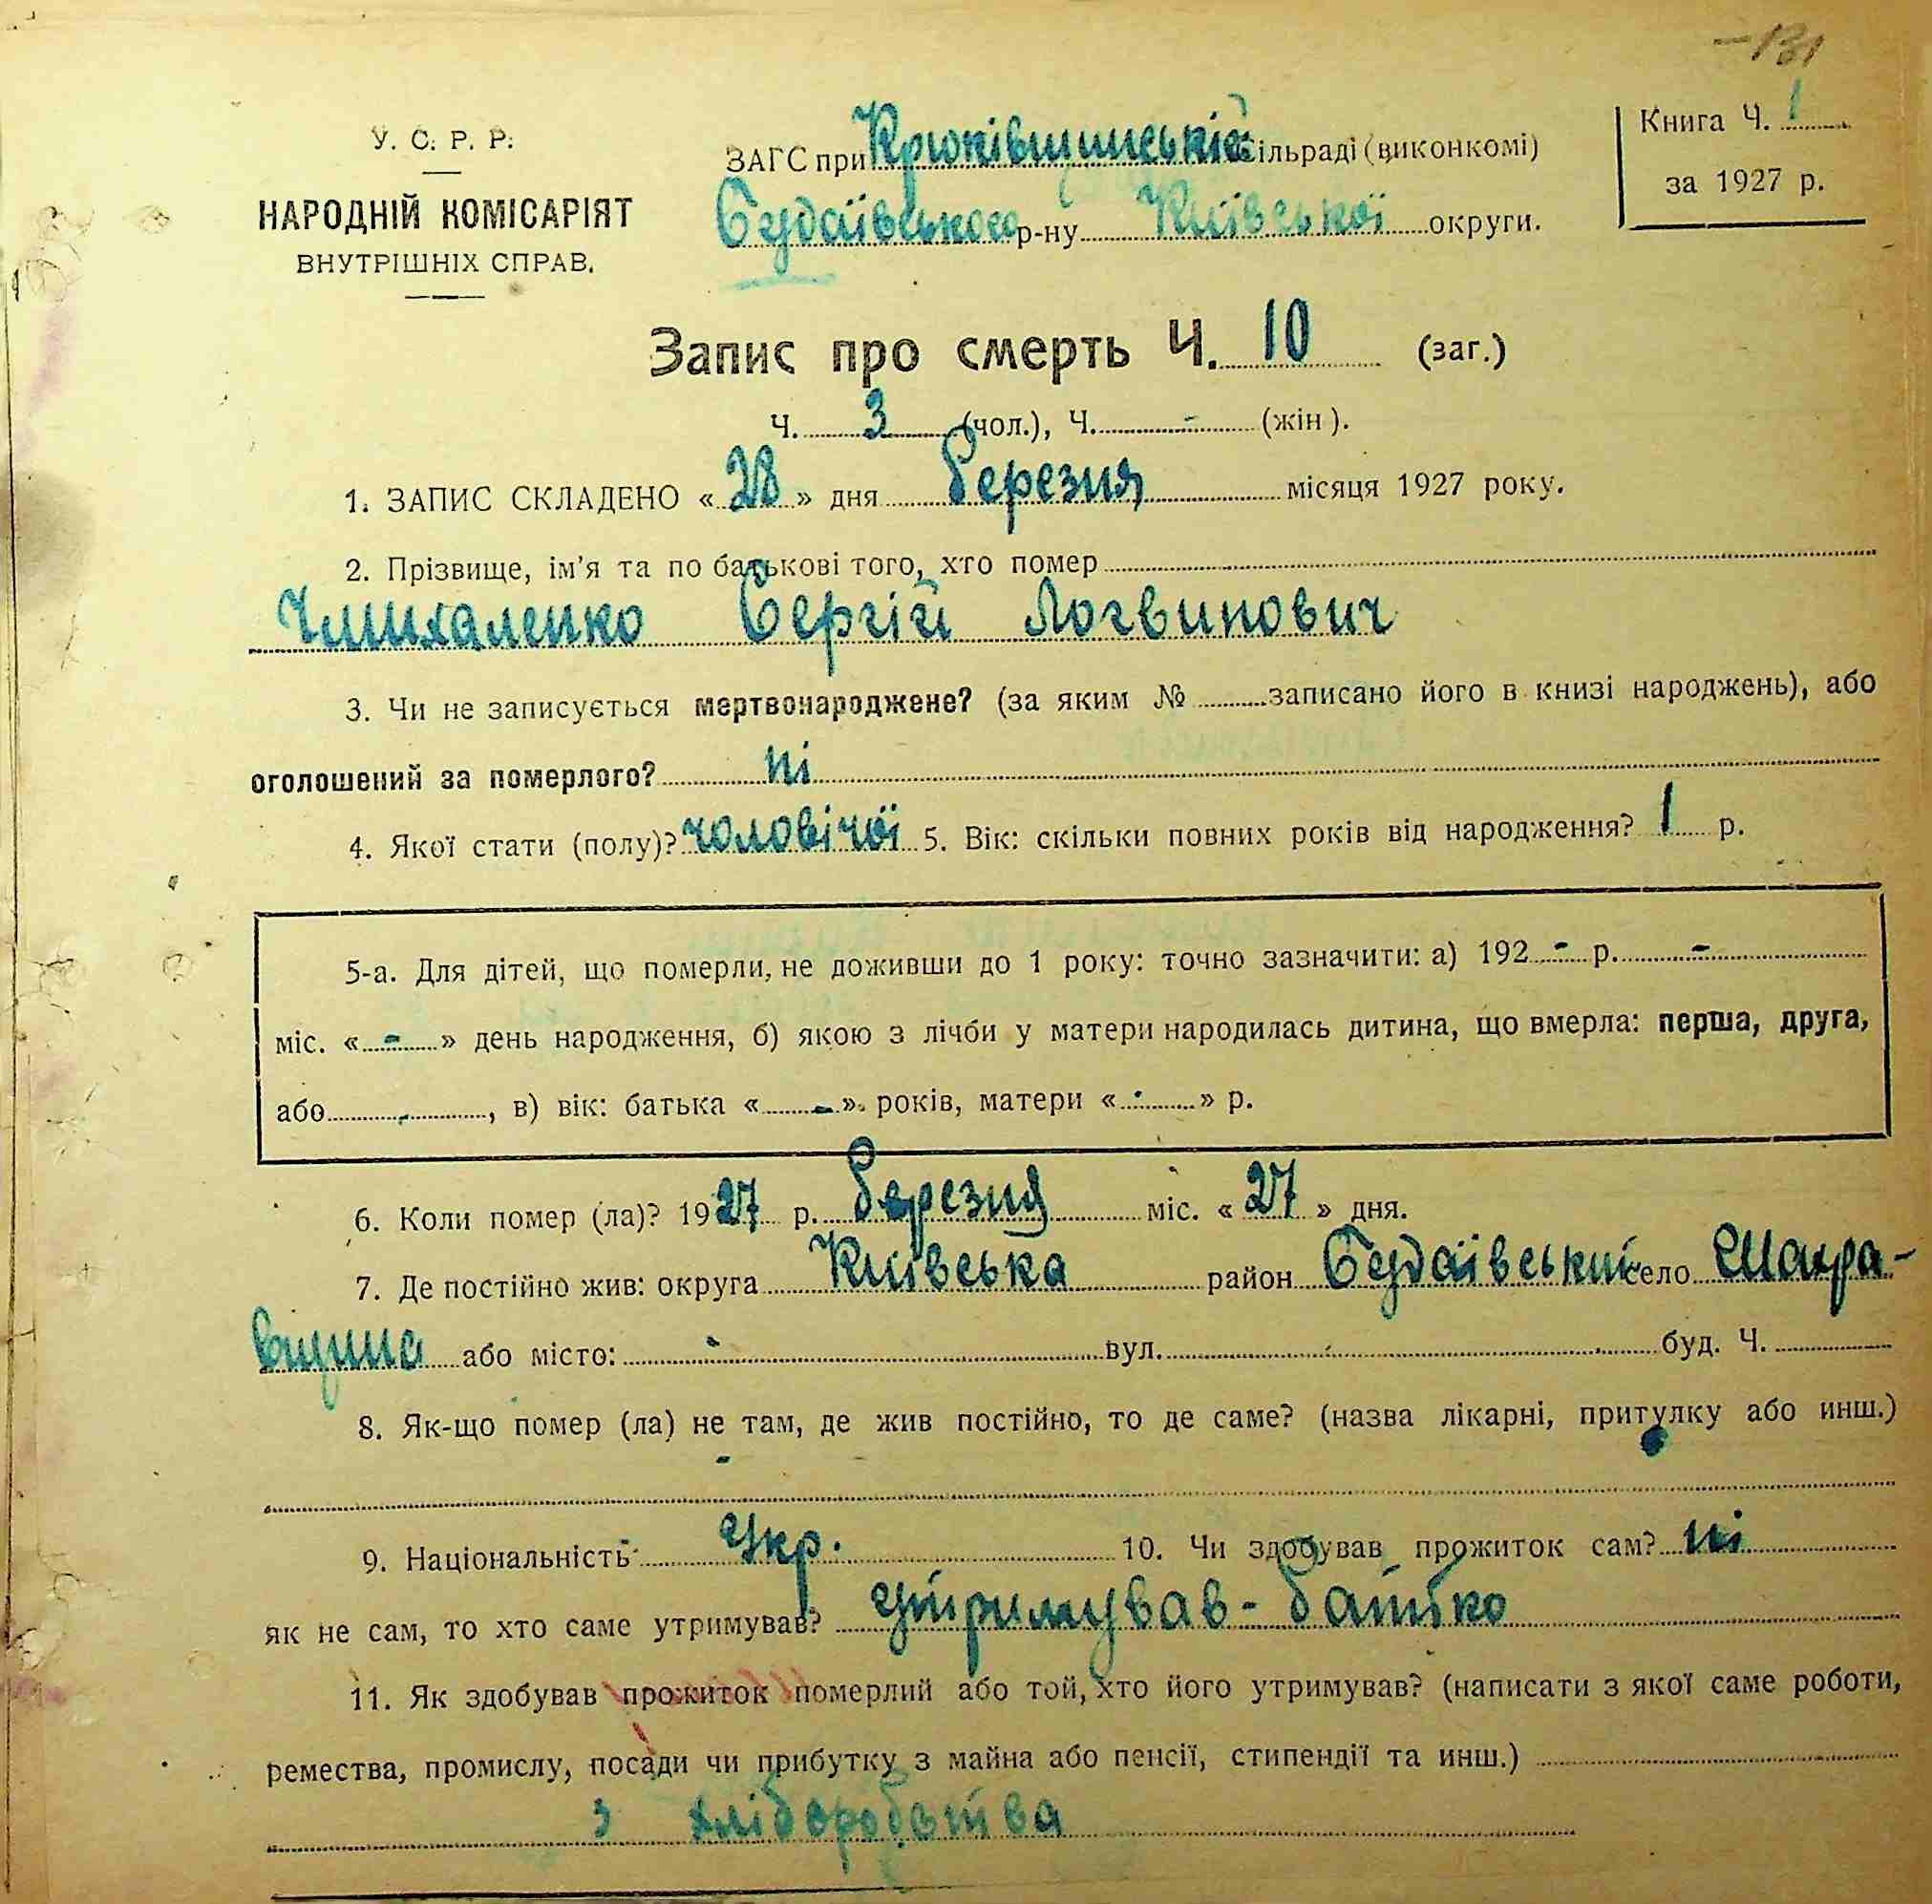 -131
У. С. Р. Р.
НАРОДНІЙ КОМІСАРІЯТ
ВНУТРІШНІХ СПРАВ.
ЗАГС при Крюківщинській сільраді (виконкомі)
Будаївського р-ну Київської округи.
Книга Ч. 1
за 1927 р.
Запис про смерть Ч. 10 (заг.)
Ч. 3 (чол.), Ч. - (жін).
1. ЗАПИС СКЛАДЕНО «28» дня березня місяця 1927 року.
2. Прізвище, ім'я та по батькові того, хто помер
Чмихаленко Сергій Логвинович
3. Чи не записується мертвонароджене? (за яким № записано його в книзі народжень), або
оголошений за померлого? ні
4. Якої стати (полу)? чоловічої 5. Вік: скільки повних років від народження? 1 р.
5-а. Для дітей, що померли, не доживши до 1 року: точно зазначити: а) 192 - р. -
міс. « - » день народження, б) якою з лічби у матери народилась дитина, що вмерла: перша, друга,
або - , в) вік: батька « - » років, матери « - » р.
6. Коли помер (ла)? 1927 р. березня міс. «27» дня.
7. Де постійно жив: округа Київська район Будаївський село Шапра-
вщина або місто: - вул. - буд. Ч.
8. Як-що помер (ла) не там, де жив постійно, то де саме? (назва лікарні, притулку або инш.)
-
9. Національність Укр. 10. Чи здобував прожиток сам? ні
як не сам, то хто саме утримував? утримував - батько
11. Як здобував прожиток померлий або той, хто його утримував? (написати з якої саме роботи,
ремества, промислу, посади чи прибутку з майна або пенсії, стипендії та инш.)
з хліборобства